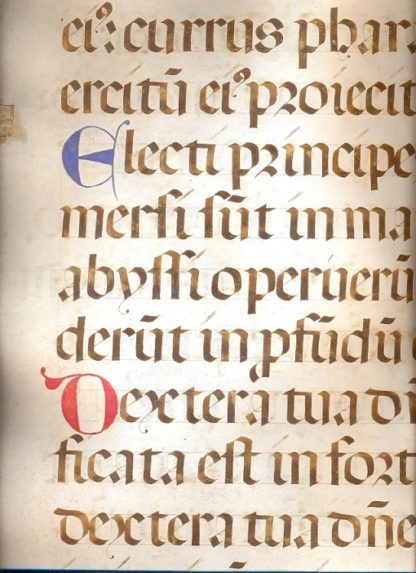 eiꝰ: currus phar
ercitū eiꝰ proiecit
Electi principe
mersi sūt in ma
abyssi operuerū
derūt in ꝓfūdū
Dextera tua
ficata est in fort
dextera tua dñe